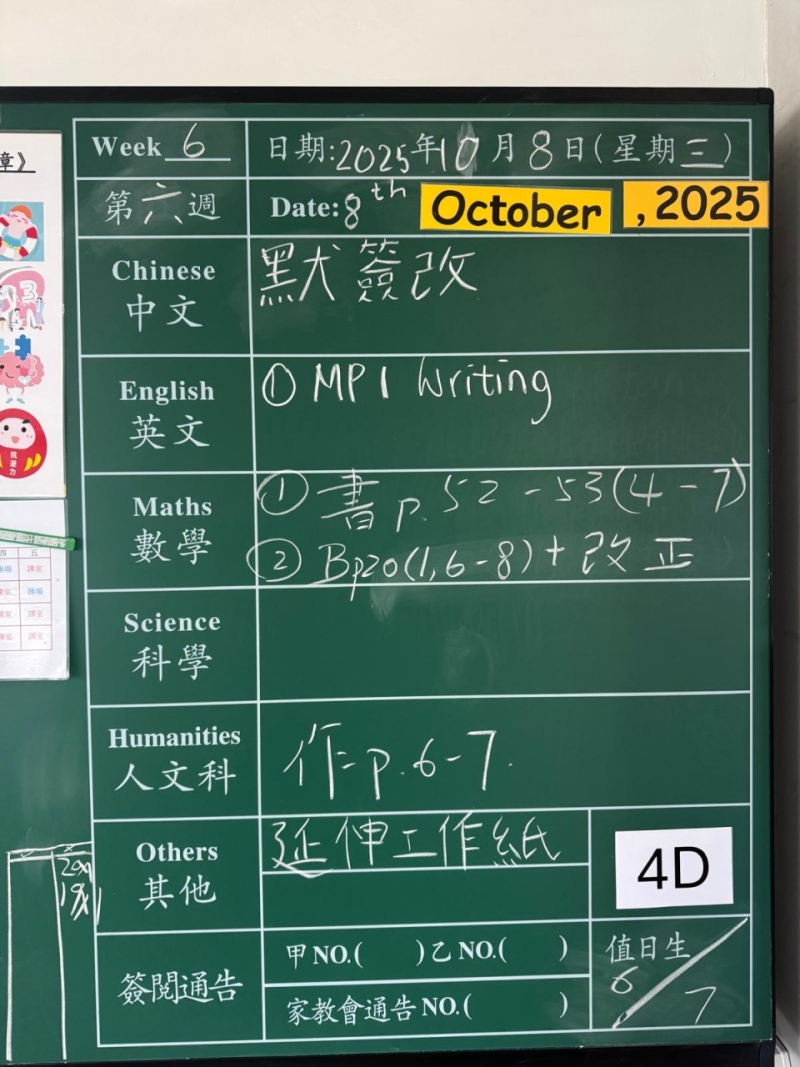 章》
Week 6
日期:2025年10月8日(星期三)
第六週
Date: 8th October , 2025
Chinese
中文
默簽改
English
英文
① MP1 Writing
Maths
數學
① 書 p. 52 - 53 (4 - 7)
② Bp20 (1, 6 - 8) + 改正
Science
科學
Humanities
人文科
作= p. 6 - 7.
Others
其他
延伸工作紙
4D
簽閱通告
甲 NO.( )乙 NO.( )
家教會通告 NO.( )
值日生
6/7
抗逆力
四 五
操場 課室
課室 操場
課室 課室
課室 課室